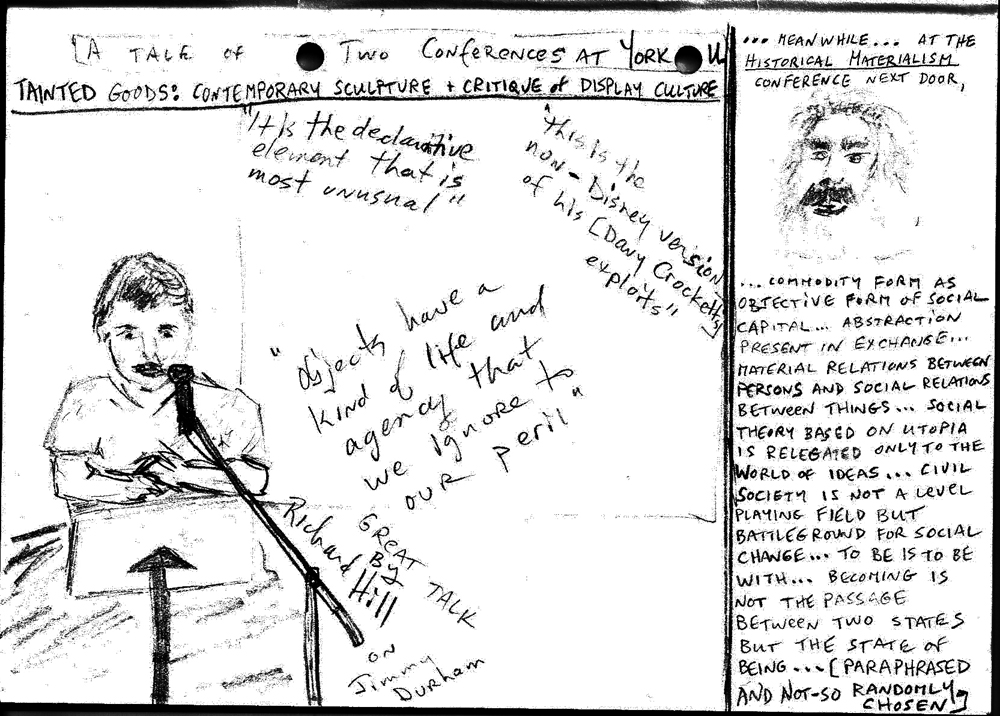 [A TALE OF TWO CONFERENCES AT YORK U
TAINTED GOODS: CONTEMPORARY SCULPTURE + CRITIQUE of DISPLAY CULTURE
"It Is the declarative
element that is
most unusual"
"This Is the
non-Disney version
of his [Davy Crockett's]
exploits"
"objects have a
kind of life and
agency that
we ignore to
our peril"
GREAT TALK
BY
Richard Hill
ON
Jimmy
Durham
... MEANWHILE... AT THE
HISTORICAL MATERIALISM
CONFERENCE NEXT DOOR,
... COMMODITY FORM AS
OBJECTIVE FORM OF SOCIAL
CAPITAL... ABSTRACTION
PRESENT IN EXCHANGE...
MATERIAL RELATIONS BETWEEN
PERSONS AND SOCIAL RELATIONS
BETWEEN THINGS... SOCIAL
THEORY BASED ON UTOPIA
IS RELEGATED ONLY TO THE
WORLD OF IDEAS... CIVIL
SOCIETY IS NOT A LEVEL
PLAYING FIELD BUT
BATTLEGROUND FOR SOCIAL
CHANGE... TO BE IS TO BE
WITH... BECOMING IS
NOT THE PASSAGE
BETWEEN TWO STATES
BUT THE STATE OF
BEING...[PARAPHRASED
AND NOT-SO RANDOMLY
CHOSEN]